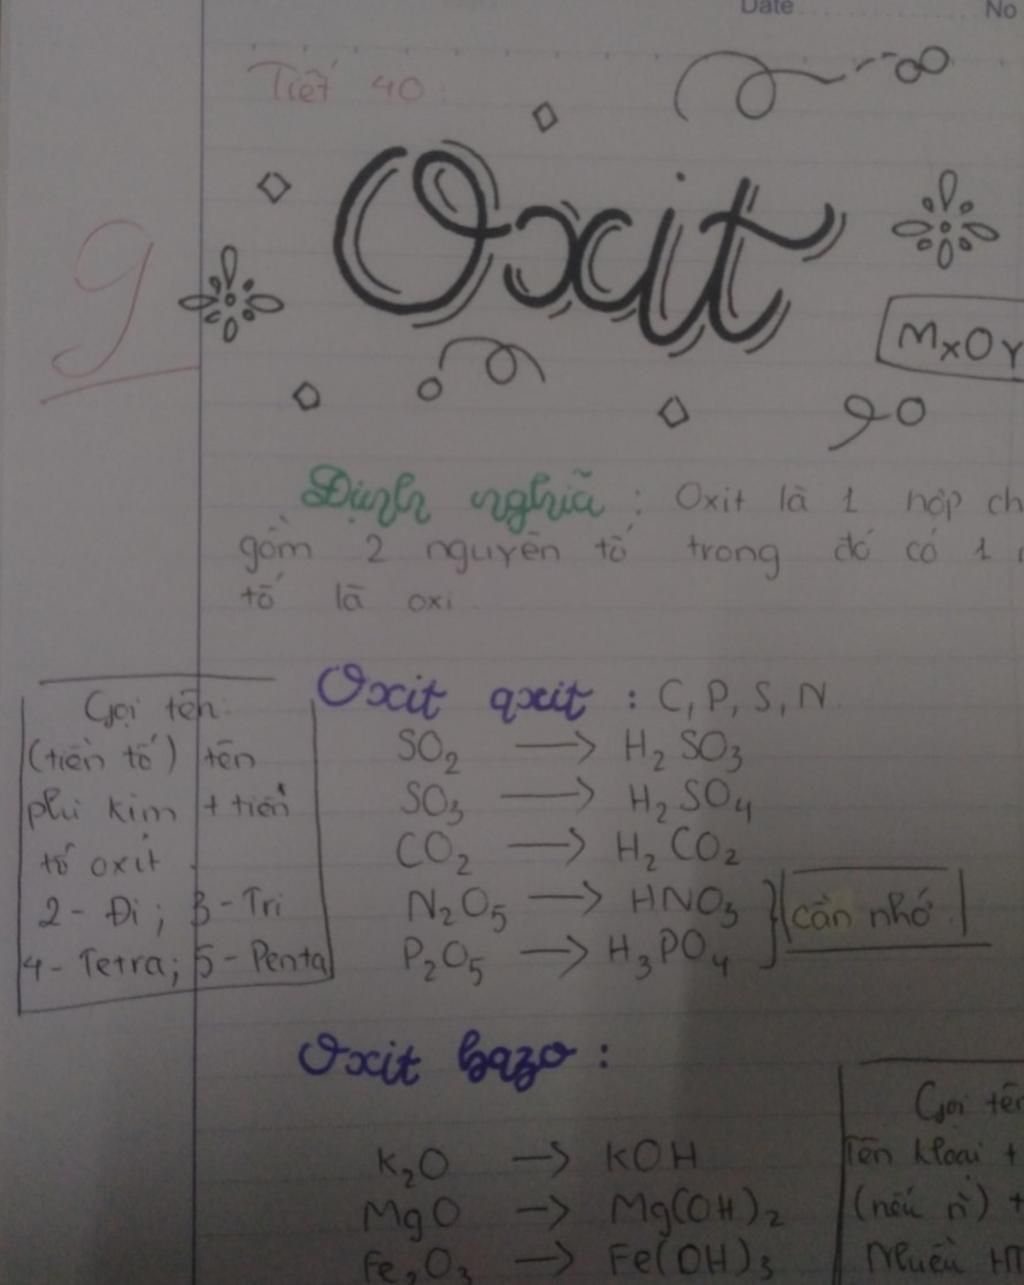 Date No
Tiết 40:
Oxit
9
MxOy
Định nghĩa : Oxit là 1 hợp
gồm 2 nguyên tố trong đó có 1
tố là oxi
Gọi tên:
(tiền tố) tên
phi kim + tiền
tố oxit
2 - Đi ; 3 - Tri
4 - Tetra; 5 - Penta
Oxit axit : C, P, S, N
SO₂ → H₂SO₃
SO₃ → H₂SO₄
CO₂ → H₂CO₂
N₂O₅ → HNO₃
P₂O₅ → H₃PO₄
cần nhớ.
Oxit bazo :
K₂O → KOH
MgO → Mg(OH)₂
Fe₂O₃ → Fe(OH)₃
Gọi tên
Tên kloại +
(nếu n) +
Nhiều HT